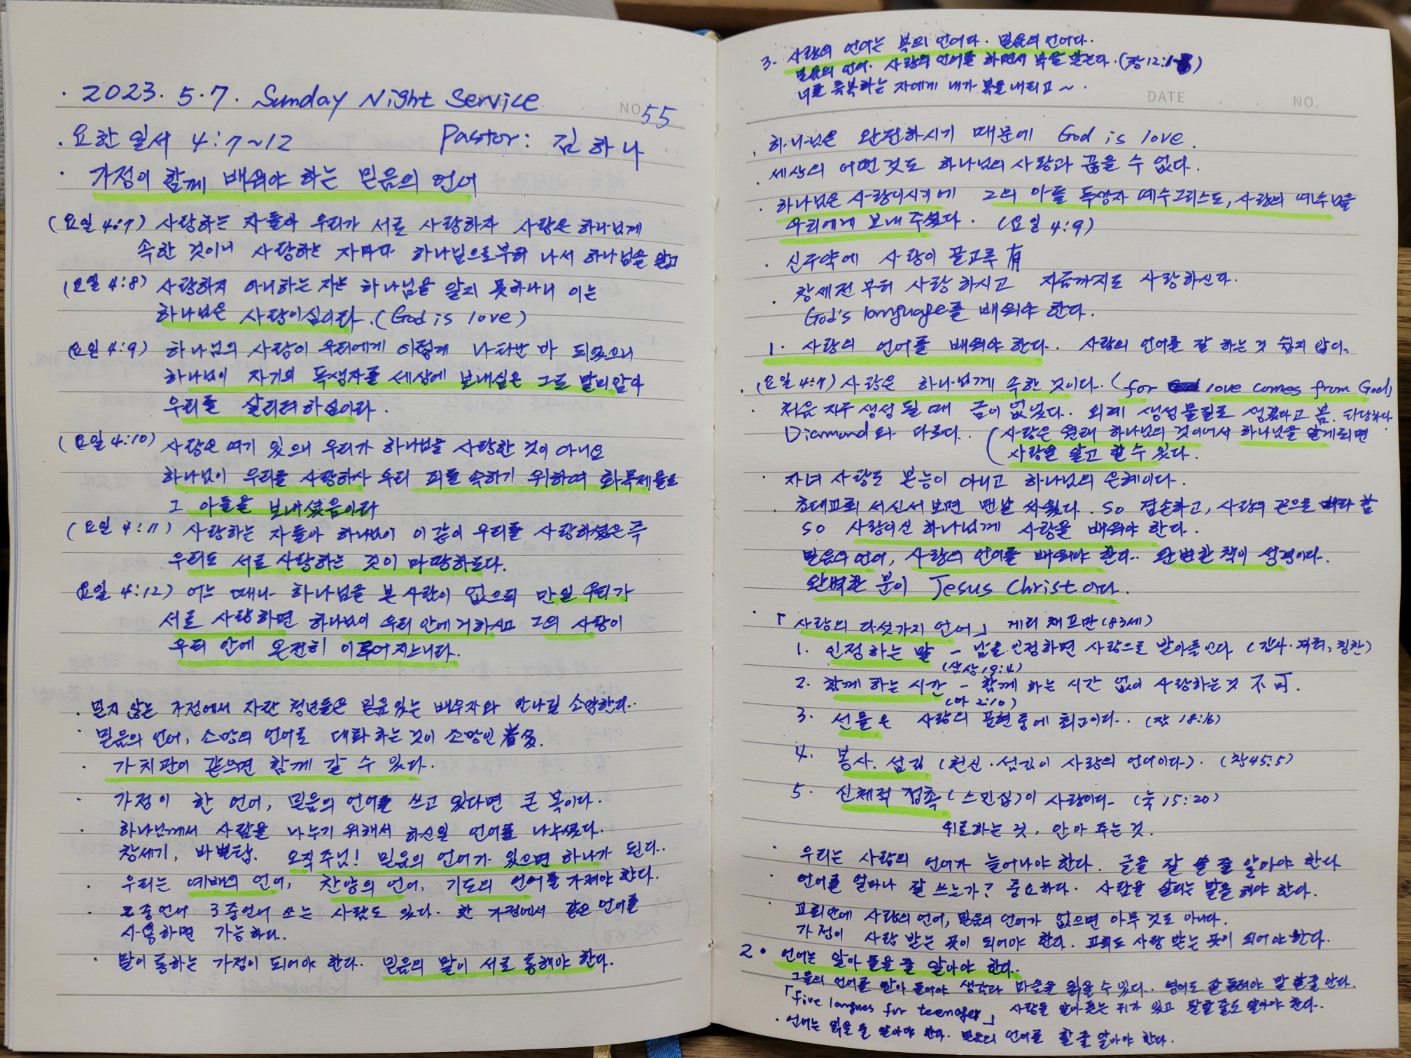 · 2023. 5. 7. Sunday Night Service
NO. 55
· 요한일서 4:7~12 Pastor: 김하나
· 가정이 함께 배워야 하는 믿음의 언어
(요일 4:7) 사랑하는 자들아 우리가 서로 사랑하자 사랑은 하나님께
속한 것이니 사랑하는 자마다 하나님으로부터 나서 하나님을 알고
(요일 4:8) 사랑하지 아니하는 자는 하나님을 알지 못하나니 이는
하나님은 사랑이심이라. (God is love)
(요일 4:9) 하나님의 사랑이 우리에게 이렇게 나타난 바 되었으니
하나님이 자기의 독생자를 세상에 보내심은 그로 말미암아
우리를 살리려 하심이라.
(요일 4:10) 사랑은 여기 있으니 우리가 하나님을 사랑한 것이 아니요
하나님이 우리를 사랑하사 우리 죄를 속하기 위하여 화목제물로
그 아들을 보내셨음이라
(요일 4:11) 사랑하는 자들아 하나님이 이같이 우리를 사랑하셨은즉
우리도 서로 사랑하는 것이 마땅하도다.
(요일 4:12) 어느 때나 하나님을 본 사람이 없으되 만일 우리가
서로 사랑하면 하나님이 우리 안에 거하시고 그의 사랑이
우리 안에 온전히 이루어지느니라.
· 믿지 않는 가정에서 자란 청년들은 믿음있는 배우자와 만나길 소망한다.
· 믿음의 언어, 소망의 언어로 대화하는 것이 소망인 者多.
· 가치관이 같으면 함께 갈 수 있다.
· 가정이 한 언어, 믿음의 언어를 쓰고 있다면 큰 복이다.
· 하나님께서 사람을 나누기 위해서 하신일 언어를 나누셨다.
창세기, 바벨탑. 오직주님! 믿음의 언어가 있으면 하나가 된다.
· 우리는 예배의 언어, 찬양의 언어, 기도의 언어를 가져야 한다.
· 2중언어 3중언어 쓰는 사람도 있다. 한 가정에서 같은 언어를
사용하면 가능하다.
· 말이 통하는 가정이 되어야 한다. 믿음의 말이 서로 통해야 한다.
3. 사랑의 언어는 복의 언어다. 믿음의 언어다.
믿음의 언어. 사랑의 언어를 하면서 복을 받는다. (창 12:1-3)
너를 축복하는 자에게 내가 복을 내리고 ~.
DATE . . NO.
· 하나님은 완전하시기 때문에 God is love.
· 세상의 어떤 것도 하나님의 사랑과 끊을 수 없다.
· 하나님은 사랑이시기에 그의 아들 독생자 예수그리스도, 사랑의 예수님을
우리에게 보내 주셨다. (요일 4:9)
· 신구약에 사랑이 골고루 有
· 창세전 부터 사랑 하시고 지금까지도 사랑하신다.
God's language를 배워야 한다.
1. 사랑의 언어를 배워야 한다. 사랑의 언어를 잘 하는 것 쉽지 않다.
· (요일 4:7) 사랑은 하나님께 속한 것이다. (for love comes from God)
· 처음 지구 생성 될 때 금이 없었다. 외계 생성물질로 생겼다고 봄. 타당하다
Diamond와 다르다. (사랑은 원래 하나님의 것이어서 하나님을 알게되면
사랑을 알고 할 수 있다.
· 자녀 사랑도 본능이 아니고 하나님의 은혜이다.
· 초대교회 서신서 보면 맨날 싸웠다. So 겸손하고, 사랑의 끈으로 하라 함
so 사랑이신 하나님께 사랑을 배워야 한다.
믿음의 언어, 사랑의 언어를 배워야 한다. 완벽한 책이 성경이다.
완벽한 분이 Jesus Christ 이다.
「사랑의 다섯가지 언어」 게리 채프만 (83세)
1. 인정하는 말 - 남을 인정하면 사랑으로 받아들인다 (감사·격려, 칭찬)
(삼상 19:4)
2. 함께 하는 시간 - 함께 하는 시간 없이 사랑하는 것 不可.
(아 2:10)
3. 선물은 사랑의 표현 중에 최고이다. (잠 18:16)
4. 봉사. 섬김 (헌신·섬김이 사랑의 언어이다). (창 45:5)
5. 신체적 접촉 (스킨십)이 사랑이다. (눅 15:20)
위로하는 것, 안아 주는 것.
· 우리는 사랑의 언어가 늘어나야 한다. 글을 잘 쓸 줄 알아야 한다
· 언어를 얼마나 잘 쓰는가? 중요하다. 사람을 살리는 말을 해야 한다.
· 교회안에 사랑의 언어, 믿음의 언어가 없으면 아무 것도 아니다.
가정이 사랑 받는 곳이 되어야 한다. 교회도 사랑 받는 곳이 되어야 한다.
2. 언어는 알아 들을 줄 알아야 한다.
그들의 언어를 알아 들어야 생각과 마음을 읽을 수 있다. 영어도 잘 들려야 말 할줄 안다.
「five langues for teenager」 사랑을 알아듣는 귀가 있고 말할 줄도 알아야 한다.
· 언어는 읽을 줄 알아야 한다. 믿음의 언어를 할 줄 알아야 한다.